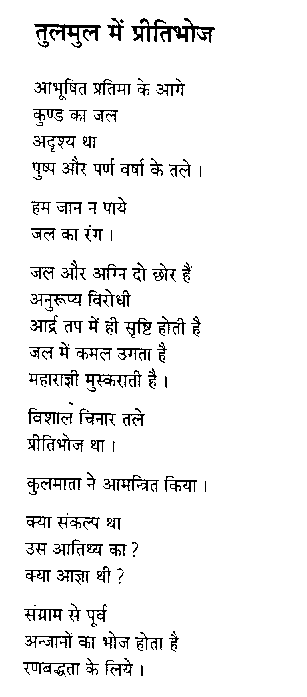 तुलमुल में प्रीतिभोज
आभूषित प्रतिमा के आगे
कुण्ड का जल
अदृश्य था
पुष्प और पर्ण वर्षा के तले ।
हम जान न पाये
जल का रंग ।
जल और अग्नि दो छोर हैं
अनुरूप्य विरोधी
आर्द्र तप में ही सृष्टि होती है
जल में कमल उगता है
महाराज्ञी मुस्कराती है ।
विशाल चिनार तले
प्रीतिभोज था ।
कुलमाता ने आमन्त्रित किया ।
क्या संकल्प था
उस आतिथ्य का ?
क्या आज्ञा थी ?
संग्राम से पूर्व
अन्जानों का भोज होता है
रणबद्धता के लिये ।